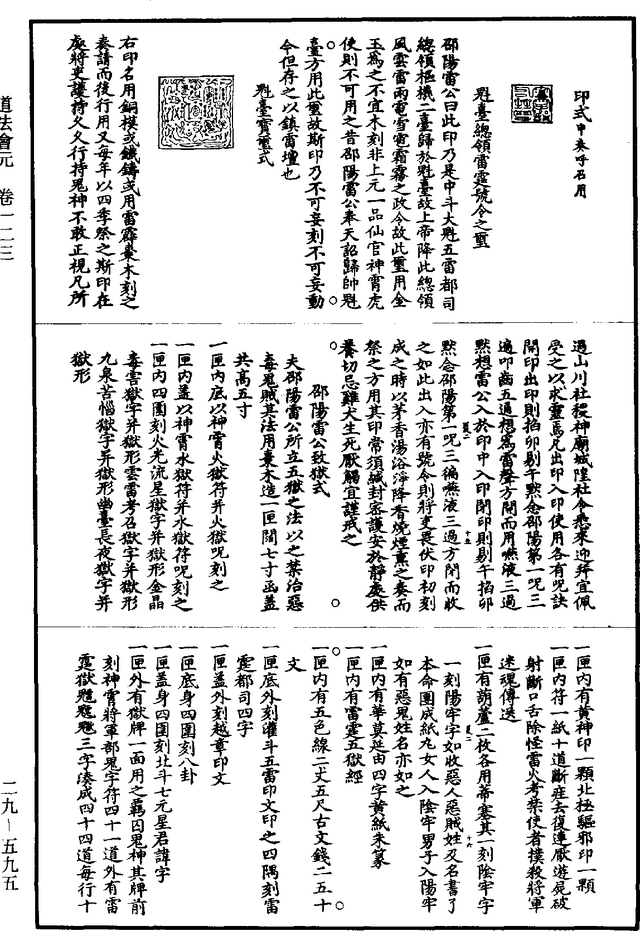 印式申奏呼召用
魁臺總領雷霆號令之璽
邵陽雷公曰此印乃是中斗大魁五雷都司
總領樞機二臺歸於魁臺故上帝降此總領
風雲雷雨電雪雹霜霧之政令故此璽用全
玉為之不宜木刻非上元一品仙官神霄虎
使則不可用之昔邵陽雷公奉天詔歸帥魁
臺方用此璽故斯印乃不可妄刻不可妄動
今但存之以鎮雷壇也
魁臺寶璽式
右印名用銅模或鐵鑄或用雷霹棗木刻之
奏請而後行用又每年以四季祭之斯印在
處將吏護持久久行持鬼神不敢正視凡所
過山川社稷神廟城隍社令悉來迎拜宜佩
受之以求靈焉凡出印入印使用各有呪訣
開印出印則掐卯剔午黙念邵陽第一呪三
遍叩齒五通想為雷聲方開而用嚥液三過
黙想雷公入於印中入印閉印則剔午掐卯
黙念邵陽第一呪三徧嚥液三過方閉而收
之如此出入亦有號令則將吏畏伏印初刻
成之時以茅香湯浴淨降香燒煙薰之奏而
祭之方用其印常須緘封密護安於靜處供
養切忌雞犬生死厭觸宜謹戒之
邵陽雷公致獄式
夫邵陽雷公所立五獄之法以之禁治惡
毒鬼賊其法用棗木造一匣闊七寸函蓋
共高五寸
一匣內底以神霄火獄符并火獄呪刻之
一匣內蓋以神霄水獄符并水獄符呪刻之
一匣內四圍刻火光流星獄字并獄形金晶
毒害獄字并獄形雲雷考召獄字并獄形
九泉苦惱獄字并獄形幽臺長夜獄字并
獄形
一匣內有黃神印一顆北極驅邪印一顆
一匣內符一紙十道斷痓去復連厭遊屍破
射斷口舌除怪雷火考禁使者撲殺將軍
迷魂傳送
一匣有葫蘆二枚各用蒂塞其一刻陰牢字
一刻陽牢字如收惡人惡賊姓及名書了
本命團成紙丸女人入陰牢男子入陽牢
如有惡鬼姓名亦如之
一匣內有華莫延由四字黃紙朱篆
一匣內有雷霆五獄經
一匣內有五色線二丈五尺古文錢二五十
文
一匣底外刻灌斗五雷印文印之四隅刻雷
霆都司四字
一匣蓋外刻越章印文
一匣底身四圍刻八卦
一匣蓋身四圍刻北斗七元星君諱字
一匣外有獄牌一面用之羈囚鬼神其牌前
刻神霄將軍部鬼字符四十一道外有雷
霆獄三字湊成四十四道每行十
道法會元 卷一二三
二九—五九五